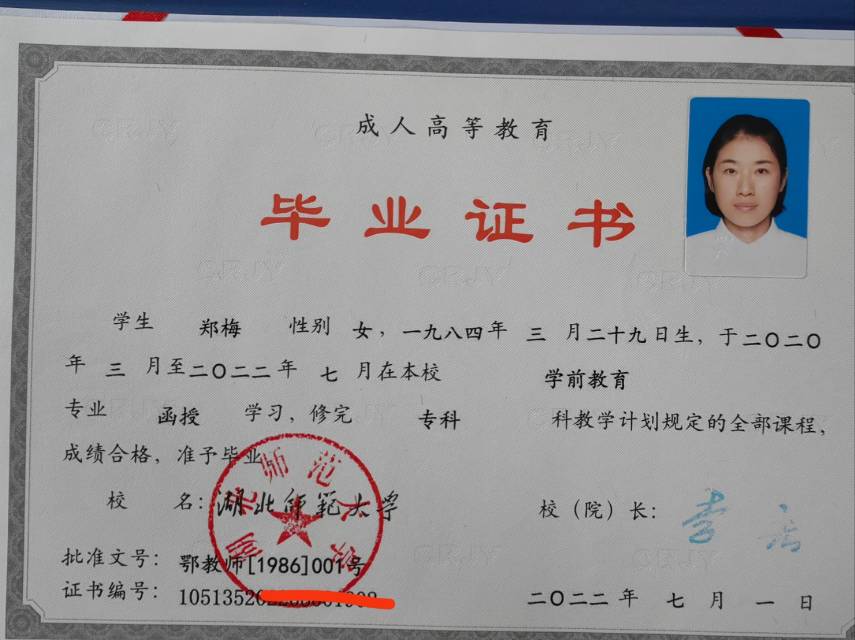 成人高等教育
毕业证书
学生 郑梅 性别 女，一九八四年 三 月二十九日生，于二〇二〇
年 三 月至二〇二二年 七 月在本校 学前教育
专业 函授 学习，修完 专科 科教学计划规定的全部课程，
成绩合格，准予毕业
校 名：湖北师范大学
校（院）长：
批准文号：鄂教师[1986]001号
证书编号：10513520
二〇二二年 七 月 一 日
湖北师范大学
CRJY
CRJY
CRJY
CRJY